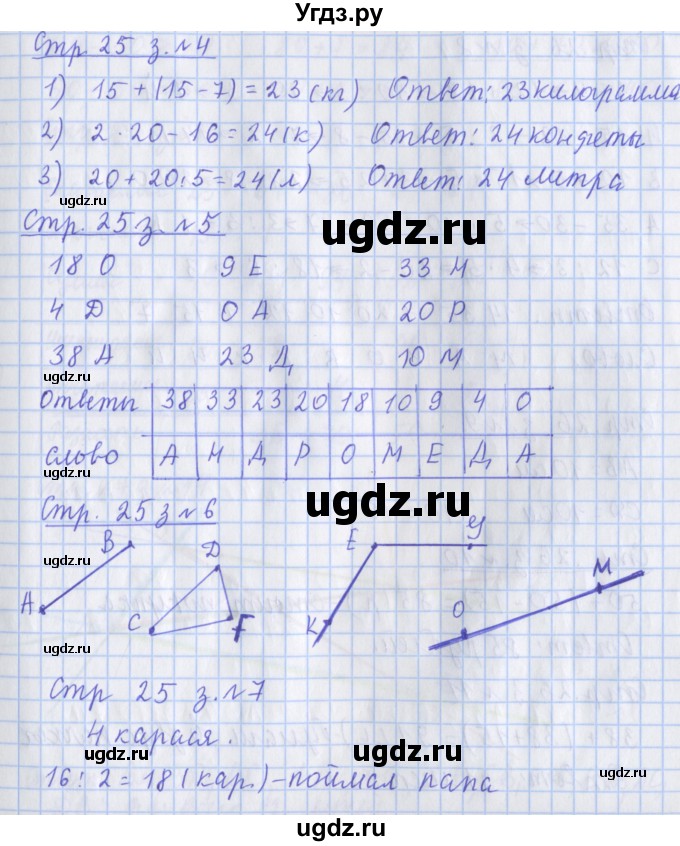 Угдз.ру
Стр 25 з.№4
1) 15 + (15 - 7) = 23 (кг) Ответ: 23 килограмма
2) 2 · 20 - 16 = 24 (к) Ответ: 24 конфеты
3) 20 + 20 : 5 = 24 (л) Ответ: 24 литра
Стр. 25 з. №5.
ugdz.ru
18 О 9 Е 33 Н
4 Д 0 А 20 Р
38 А 23 Д 10 М
ugdz.ru
ответы 38 33 23 20 18 10 9 4 0
слово А Н Д Р О М Е Д А
ugdz.ru
Стр. 25 з №6
ugdz.ru
A B C D F E K У O M
ugdz.ru
Стр 25 з.№7
4 карася.
ugdz.ru ugdz.ru
16 : 2 = 18 (кар.) - поймал папа
ugdz.ru
ugdz.ru